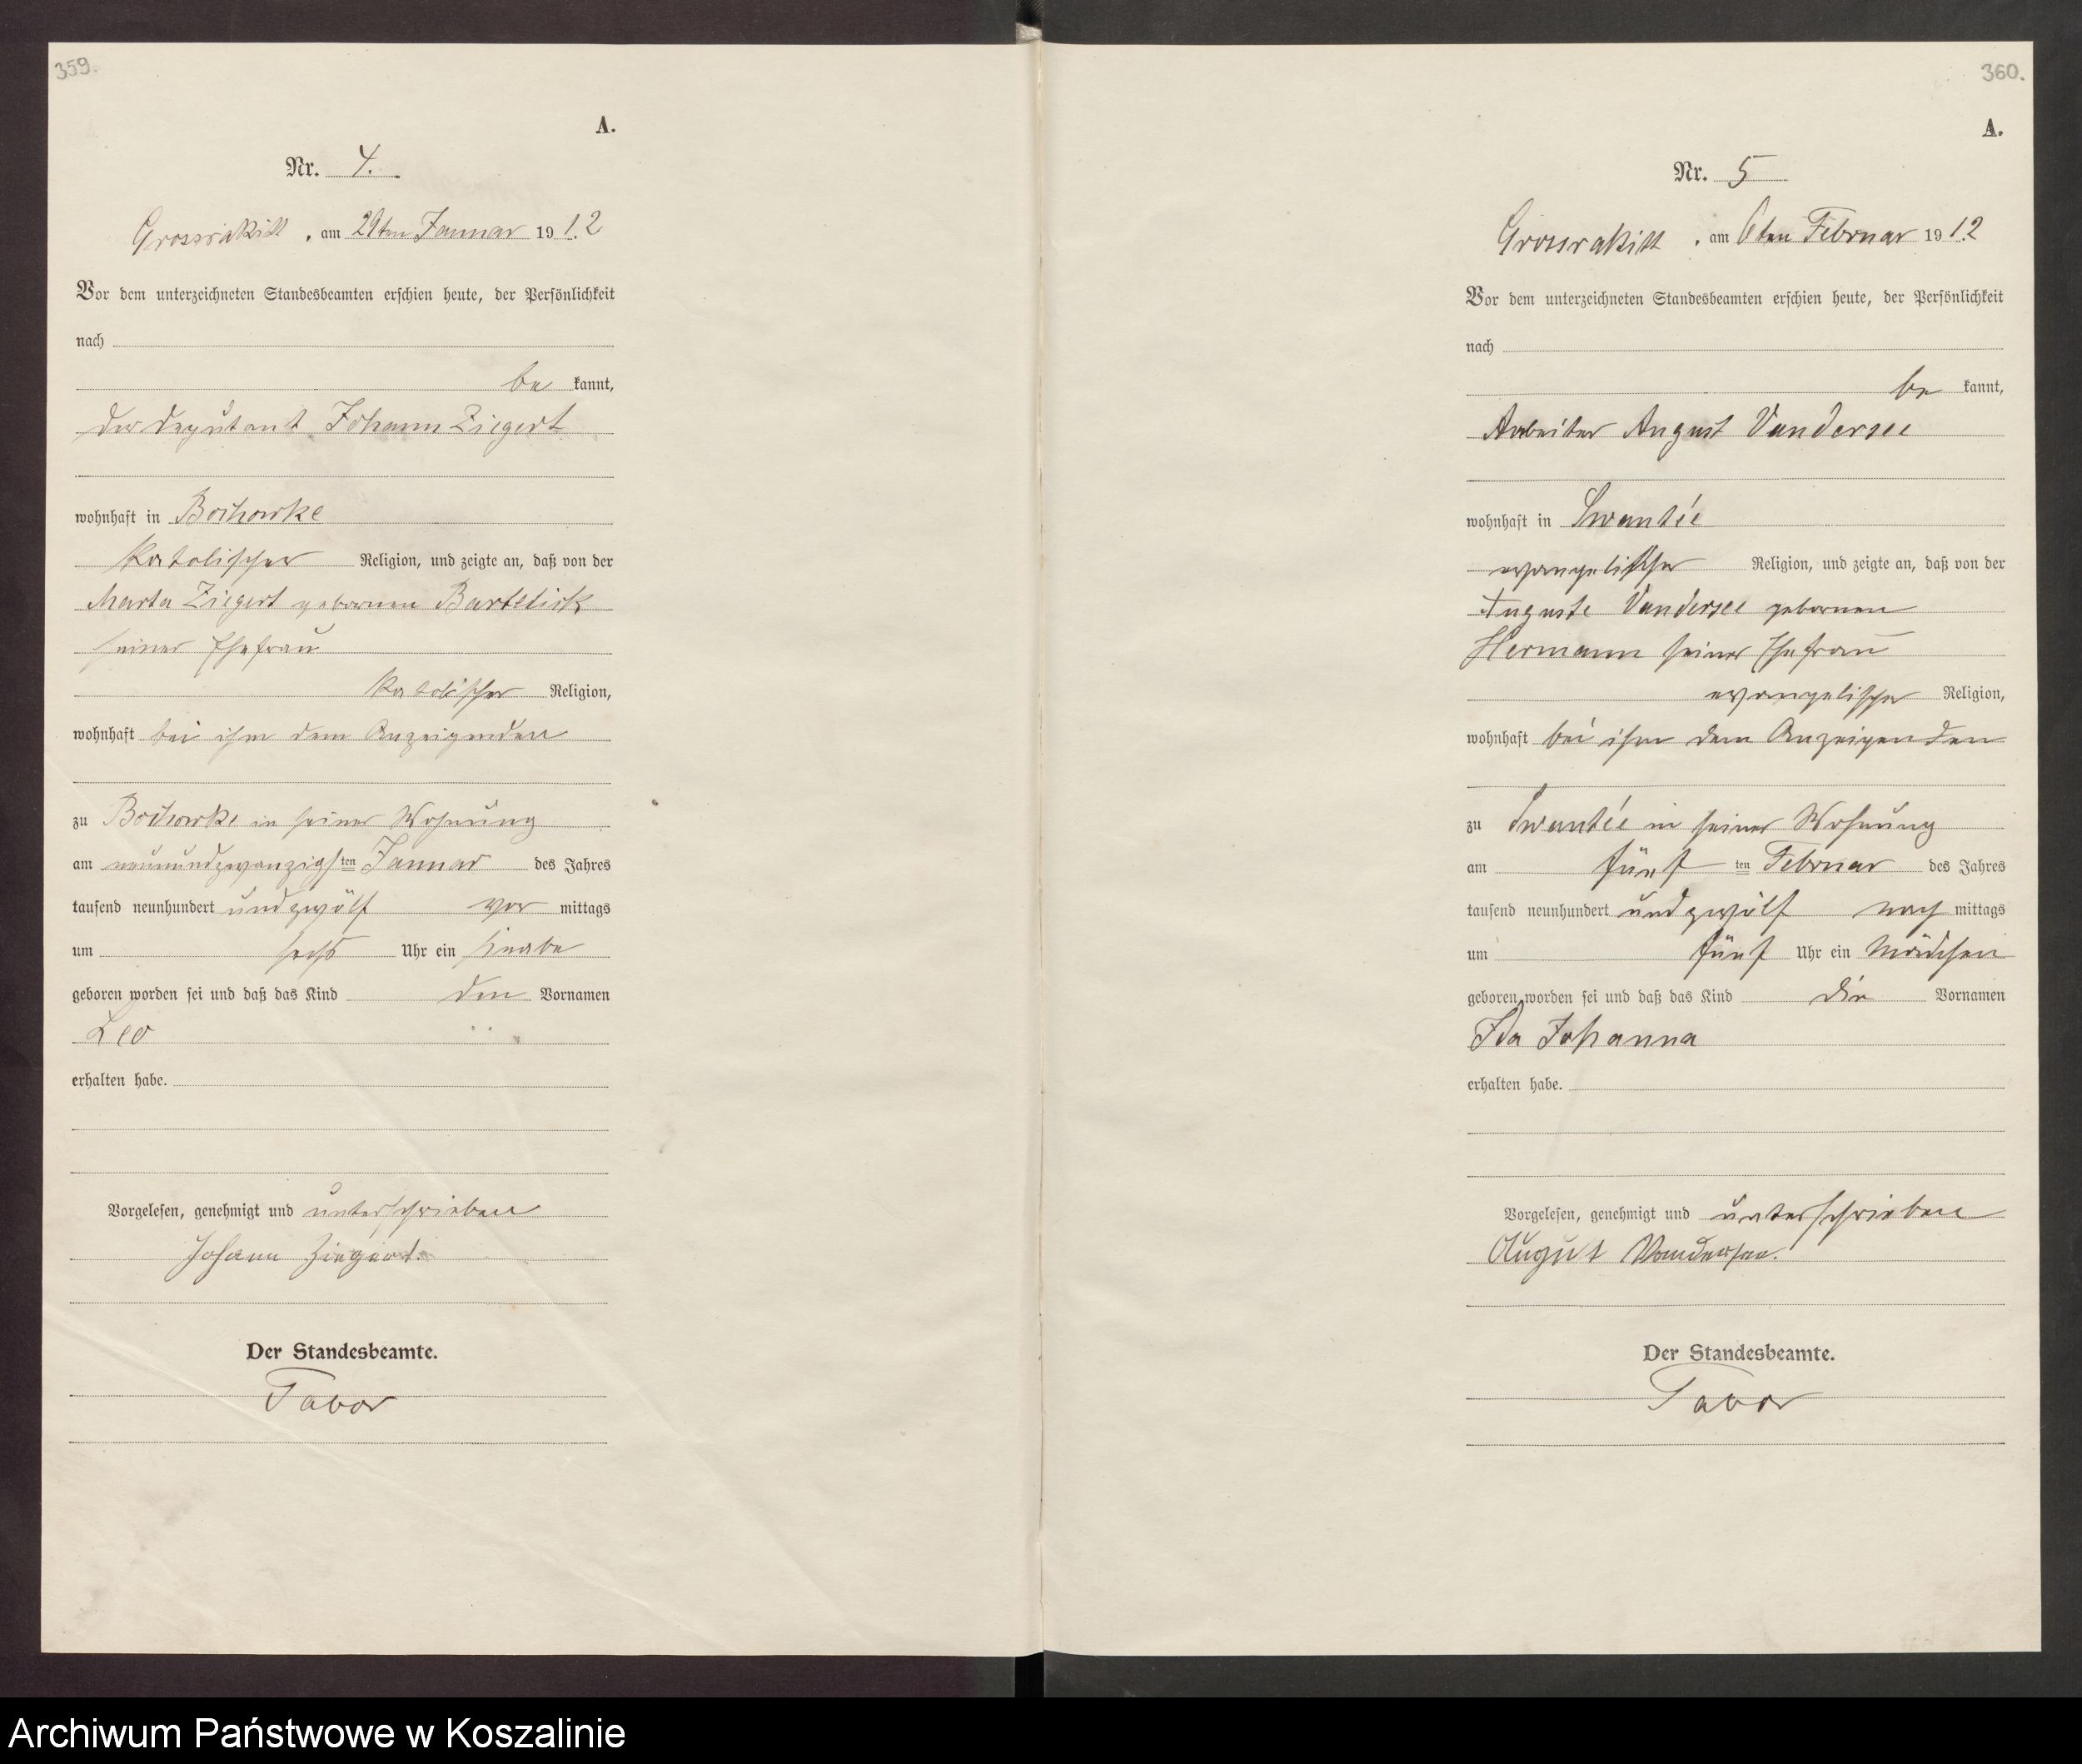 359.
A.
Nr. 4.
Grossrakitt, am 29ten Januar 1912
Vor dem unterzeichneten Standesbeamten erschien heute, der Persönlichkeit
nach
be kannt,
der Deputant Johann Ziegert
wohnhaft in Bochowke
katolischer Religion, und zeigte an, daß von der
Marta Ziegert gebornen
seiner Ehefrau
katolischer Religion,
wohnhaft bei ihm dem Anzeigenden
zu Bochowke in seiner Wohnung
am neunundzwanzigsten Januar des Jahres
tausend neunhundert und zwölf vor mittags
um sechs Uhr ein Knabe
geboren worden sei und daß das Kind den Vornamen
Leo
erhalten habe.
Vorgelesen, genehmigt und unterschrieben
Johann Ziegert.
Der Standesbeamte.
Tabor
360.
A.
Nr. 5
Grossrakitt, am 6ten Februar 1912
Vor dem unterzeichneten Standesbeamten erschien heute, der Persönlichkeit
nach
be kannt,
Arbeiter August Vandersee
wohnhaft in Swantée
evangelischer Religion, und zeigte an, daß von der
Auguste Vandersee gebornen
Hermann seiner Ehefrau
evangelischer Religion,
wohnhaft bei ihm dem Anzeigenden
zu Swantée in seiner Wohnung
am fünf ten Februar des Jahres
tausend neunhundert und zwölf nach mittags
um fünf Uhr ein Mädchen
geboren worden sei und daß das Kind die Vornamen
Ida Johanna
erhalten habe.
Vorgelesen, genehmigt und unterschrieben
August Vandersee.
Der Standesbeamte.
Tabor
Archiwum Państwowe w Koszalinie